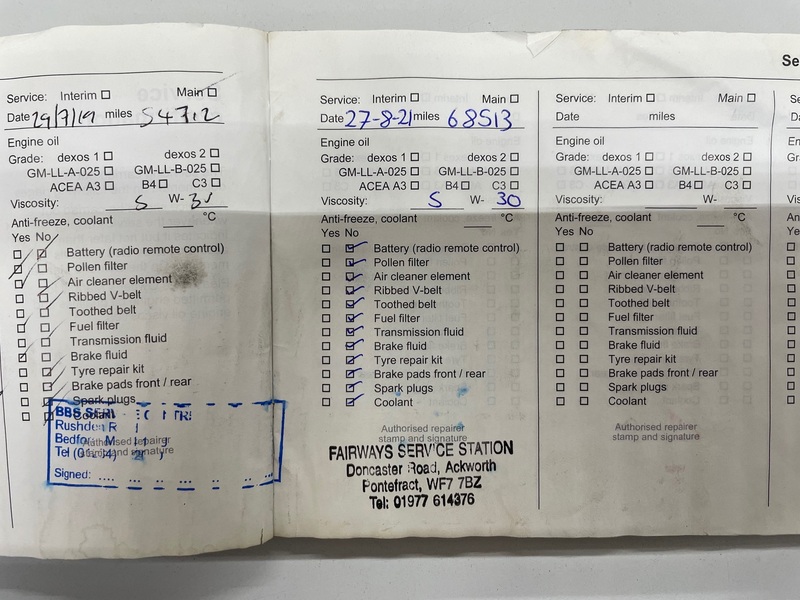 Se
Service: Interim ☐ Main ☐
Date 29/7/19 miles 54712
Engine oil
Grade: dexos 1 ☐ dexos 2 ☐
GM-LL-A-025 ☐ GM-LL-B-025 ☐
ACEA A3 ☐ B4 ☐ C3 ☐
Viscosity: 5 W- 30
Anti-freeze, coolant °C
Yes No
Battery (radio remote control)
Pollen filter
Air cleaner element
Ribbed V-belt
Toothed belt
Fuel filter
Transmission fluid
Brake fluid
Tyre repair kit
Brake pads front / rear
Spark plugs
Coolant
Authorised repairer
stamp and signature
BBS
Rushden R
Bedfo
Tel
Signed:
Service: Interim ☐ Main ☐
Date 27-8-21 miles 68513
Engine oil
Grade: dexos 1 ☐ dexos 2 ☐
GM-LL-A-025 ☐ GM-LL-B-025 ☐
ACEA A3 ☐ B4 ☐ C3 ☐
Viscosity: 5 W- 30
Anti-freeze, coolant °C
Yes No
Battery (radio remote control)
Pollen filter
Air cleaner element
Ribbed V-belt
Toothed belt
Fuel filter
Transmission fluid
Brake fluid
Tyre repair kit
Brake pads front / rear
Spark plugs
Coolant
Authorised repairer
stamp and signature
FAIRWAYS SERVICE STATION
Doncaster Road, Ackworth
Pontefract, WF7 7BZ
Tel: 01977 614376
Service: Interim ☐ Main ☐
Date miles
Engine oil
Grade: dexos 1 ☐ dexos 2 ☐
GM-LL-A-025 ☐ GM-LL-B-025 ☐
ACEA A3 ☐ B4 ☐ C3 ☐
Viscosity: W-
Anti-freeze, coolant °C
Yes No
Battery (radio remote control)
Pollen filter
Air cleaner element
Ribbed V-belt
Toothed belt
Fuel filter
Transmission fluid
Brake fluid
Tyre repair kit
Brake pads front / rear
Spark plugs
Coolant
Authorised repairer
stamp and signature